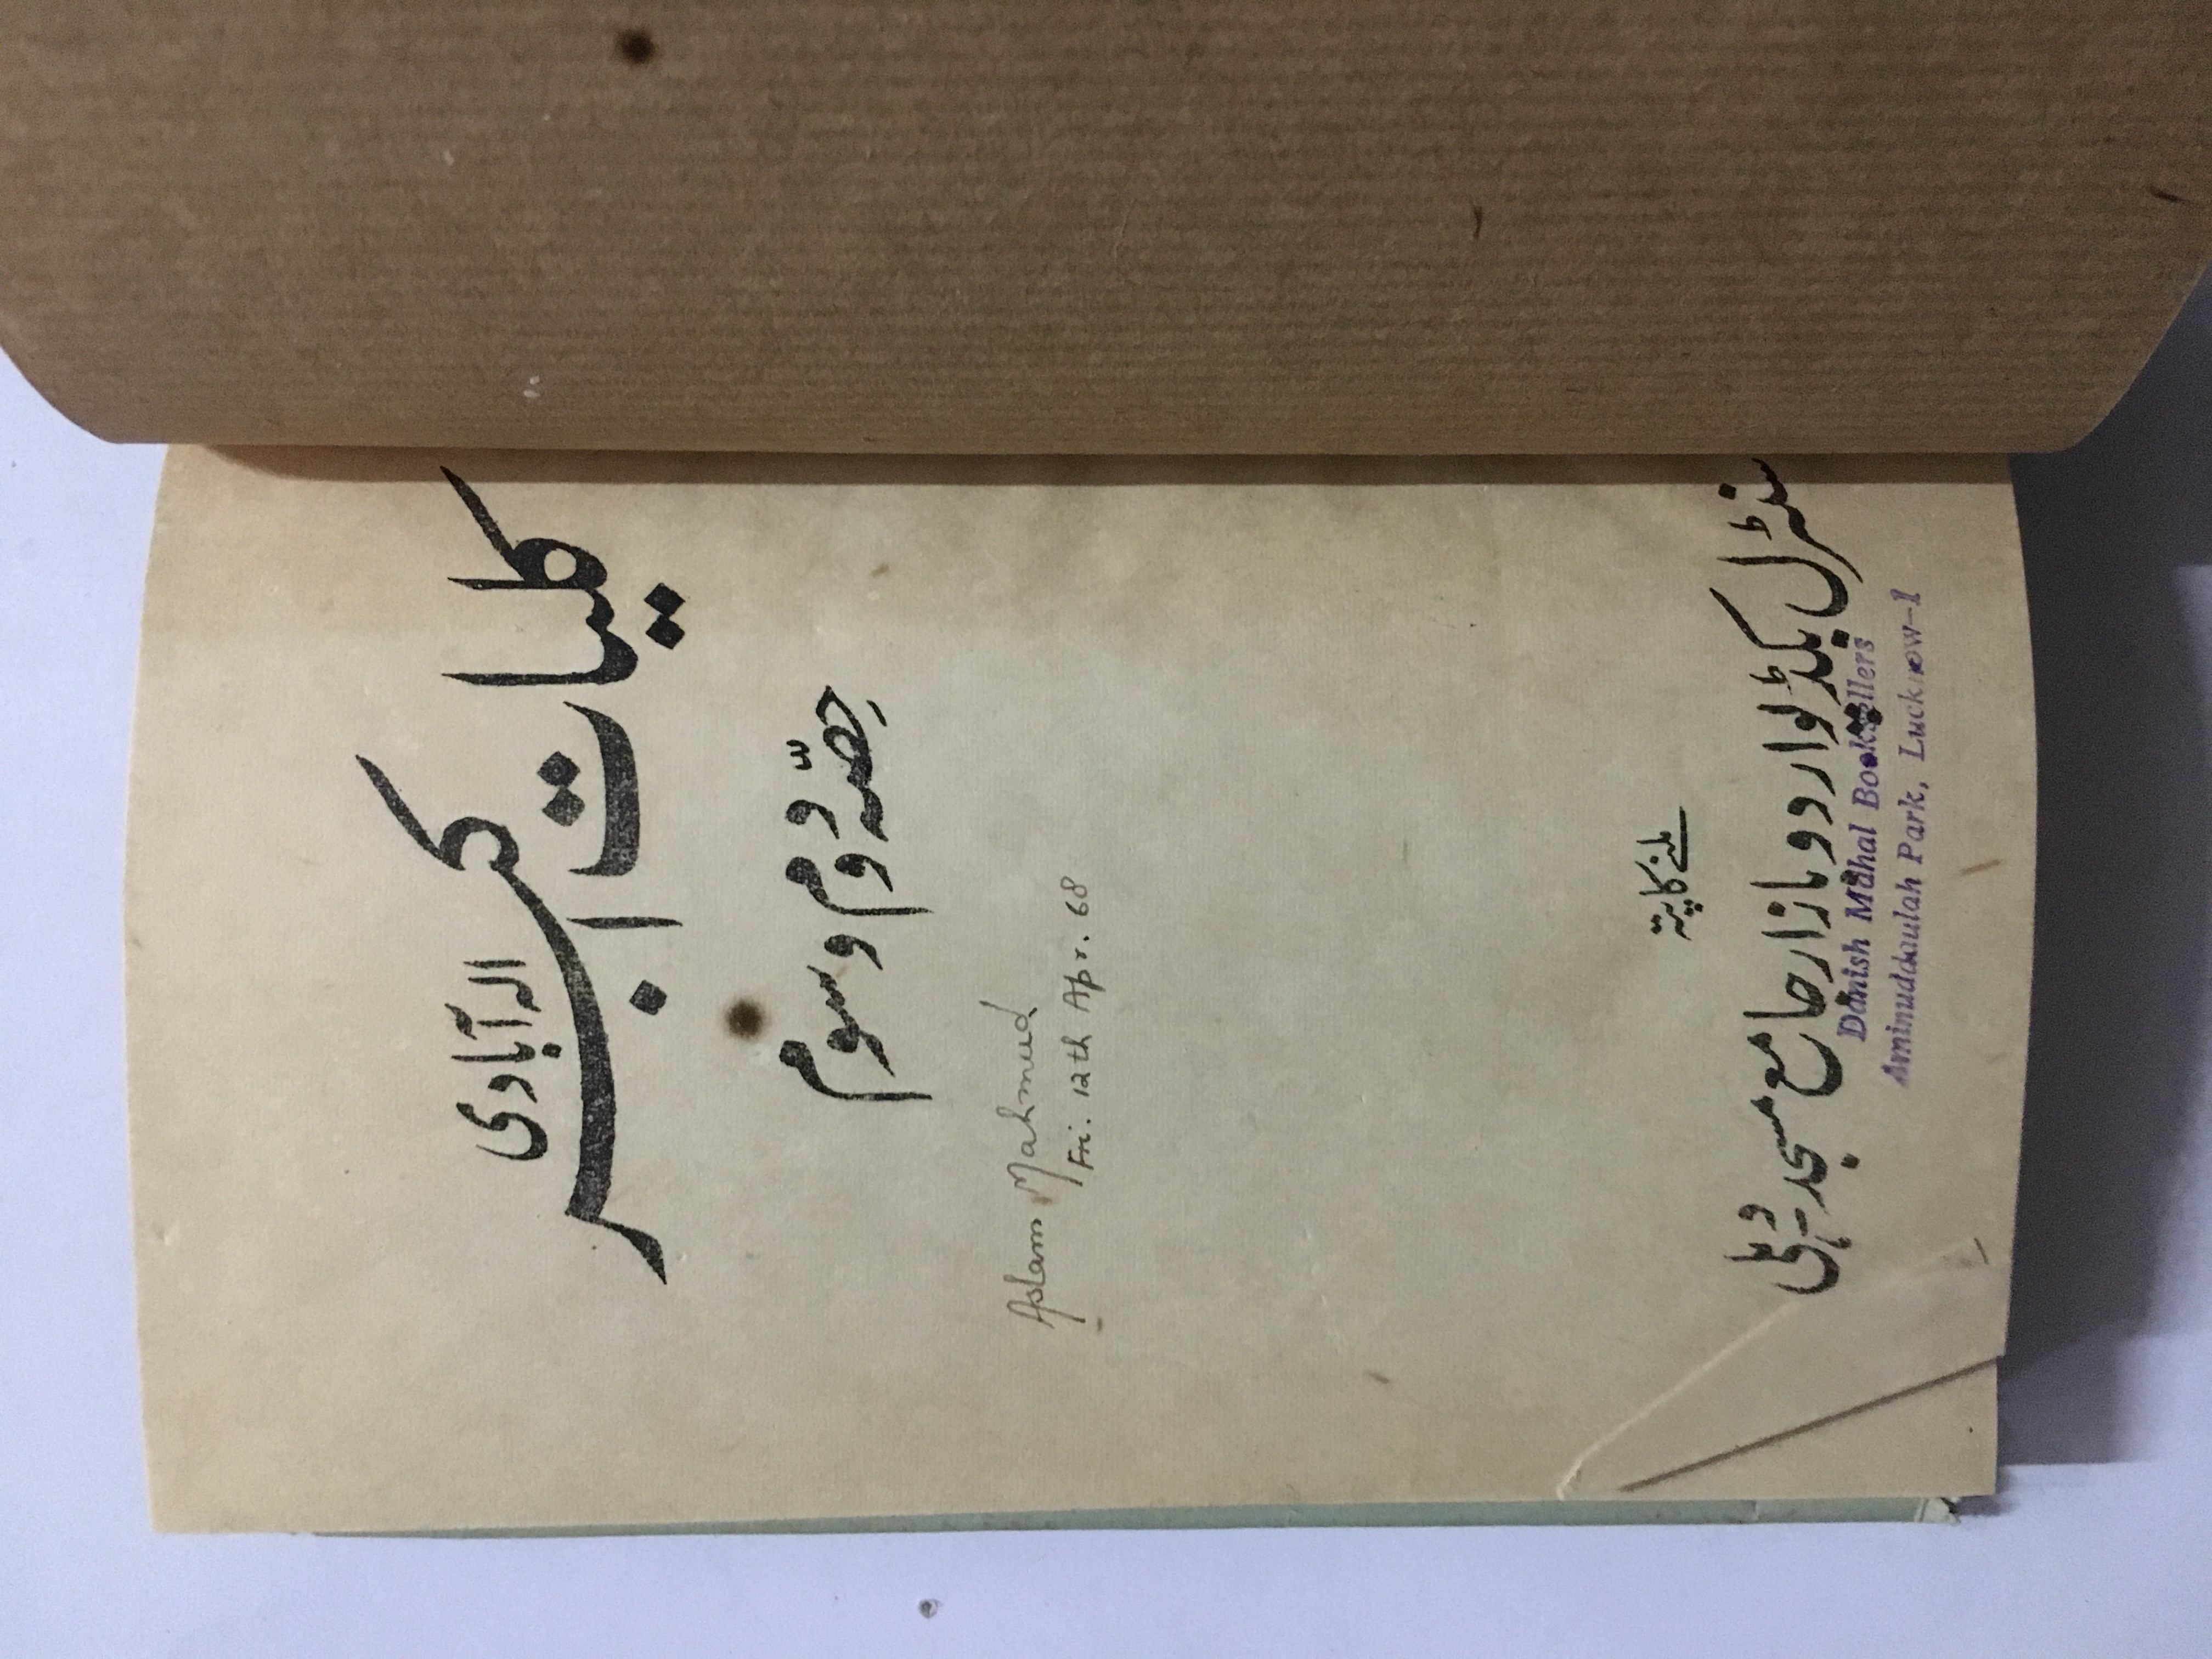 کلیات اکبر
الہ آبادی
حصّہ دوم و سوم
Aslam Mahmud
Fri. 12th Apr. 68
ملنے کا پتہ
سنٹرل بکڈپو اردو بازار جامع مسجد دہلی
Danish Mahal Booksellers
Aminuddaulah Park, Lucknow-1